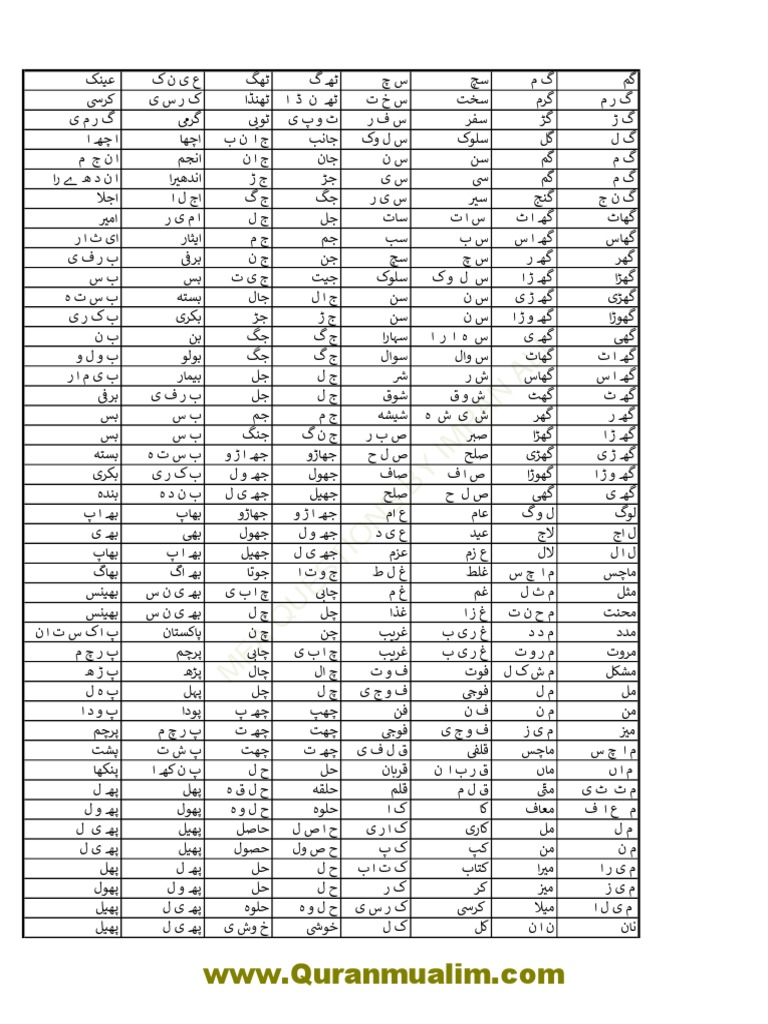 گم گ م سچ س چ ٹھ گ ٹھگ ع ی ن ک عینک
گ ر م گرم سخت س خ ت ٹھ ن ڈ ا ٹھنڈا ک ر س ی کرسی
گ ڑ گڑ سفر س ف ر ٹ و پ ی ٹوپی گرمی گ ر م ی
گ ل گل سلوک س ل وک جانب ج ا ن ب اچھا ا چھ ا
گ م گم سن س ن جان ج ان انجم ا ن ج م
گ م گم سی س ی جڑ ج ڑ اندھیرا ا ن دھ ے را
گ ن ج گنج سیر س ی ر جگ ج گ اج ل ا اجلا
گھاٹ گھ ا ٹ س ا ت سات جل ج ل ا م ی ر امیر
گھاس گھ ا س س ب سب جم ج م ایثار ای ث ا ر
گھر گھ ر س چ سچ جن ج ن برفی ب ر ف ی
گھڑا گھ ڑ ا س ل و ک سلوک جیت ج ی ت بس ب س
گھڑی گھ ڑ ی س ن سن ج ال جال بستہ ب س ت ہ
گھوڑا گھ و ڑ ا س ن سن ج ڑ جڑ بکری ب ک ر ی
گھی گھ ی س ہ ا ر ا سہارا ج گ جگ بن ب ن
گھ ا ٹ گھاٹ س وال سوال ج گ جگ بولو ب و ل و
گھ ا س گھاس ش ر شر ج ل جل بیمار ب ی م ا ر
گھ ٹ گھٹ ش و ق شوق ج ل جل ب ر ف ی برفی
گھ ر گھر ش ی ش ہ شیشہ ج م جم ب س بس
گھ ڑ ا گھڑا صبر ص ب ر ج ن گ جنگ ب س بس
گھ ڑ ی گھڑی صلح ص ل ح جھاڑو جھ ا ڑ و ب س ت ہ بستہ
گھ و ڑ ا گھوڑا ص ا ف صاف جھول جھ و ل ب ک ر ی بکری
گھ ی گھی ص ل ح صلح جھیل جھ ی ل ب ن د ہ بندہ
لوگ ل و گ عام ع ام جھ ا ڑ و جھاڑو بھاپ بھ ا پ
ل اج لاج عید ع ی د جھ و ل جھول بھی بھ ی
ل ا ل لال ع زم عزم جھ ی ل جھیل بھ ا پ بھاپ
ماچس م ا چ س غلط غ ل ط ج و ت ا جوتا بھ اگ بھاگ
مثل م ث ل غم غ م چابی چ ا ب ی بھ ی ن س بھینس
محنت م ح ن ت غ ز ا غذا چل چ ل بھ ی ن س بھینس
مدد م د د غ ر ی ب غریب چن چ ن پاکستان پ اک س ت ا ن
مروت م ر و ت غ ر ی ب غریب چ ا ب ی چابی پرچم پ ر چ م
مشکل م ش ک ل فوت ف و ت چ ال چال پڑھ پ ڑ ھ
مل م ل فوجی ف و ج ی چ ل چل پہل پ ہ ل
من م ن ف ن فن چھپ چھ پ پودا پ و د ا
میز م ی ز ف و ج ی فوجی چھت چھ ت پ ر چ م پرچم
م ا چ س ماچس قلفی ق ل ف ی چھ ت چھت پ ش ت پشت
م اں ماں ق ر ب ا ن قربان حل ح ل پ ن کھ ا پنکھا
م ٹ ٹ ی مٹی ق ل م قلم حلقہ ح ل ق ہ پھل پھ ل
م ع ا ف معاف کا ک ا حلوہ ح ل و ہ پھول پھ و ل
م ل مل کاری ک ا ر ی ح ا ص ل حاصل پھیل پھ ی ل
م ن من کپ ک پ ح ص ول حصول پھیل پھ ی ل
م ی ر ا میرا کتاب ک ت ا ب ح ل حل پھ ل پھل
م ی ز میز کر ک ر ح ل حل پھ و ل پھول
م ی ل ا میلا کرسی ک ر س ی ح ل و ہ حلوہ پھ ی ل پھیل
نان ن ا ن گل ک ل خوشی خ و ش ی پھ ی ل پھیل
www.Quranmualim.com